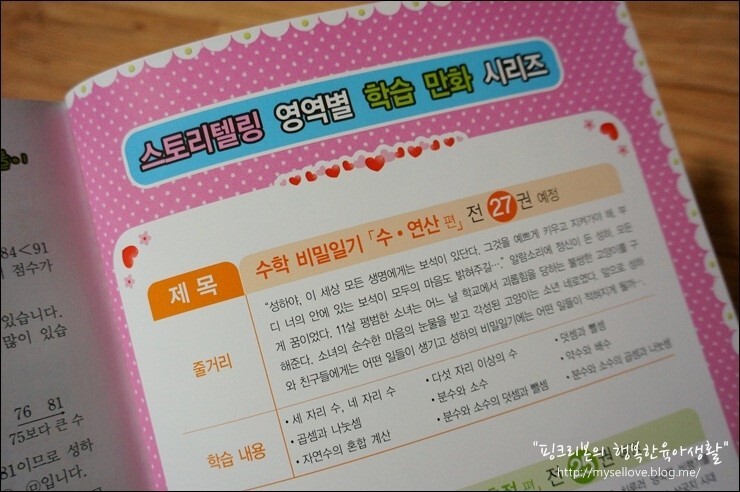 스토리텔링 영역별 학습 만화 시리즈
제 목
수학 비밀일기 「수·연산 편」 전 27권 예정
줄거리
"성하야, 이 세상 모든 생명에게는 보석이 있단다. 그것을 예쁘게 키우고 지켜가야 해. 부
디 너의 안에 있는 보석이 모두의 마음도 밝혀주길…" 알람소리에 정신이 든 성하. 모든
게 꿈이었다. 11살 평범한 소녀는 어느 날 학교에서 괴롭힘을 당하는 불쌍한 고양이를 구
해준다. 소녀의 순수한 마음의 눈물을 받고 각성된 고양이는 소년 네로였다. 앞으로 성하
와 친구들에게는 어떤 일들이 생기고 성하의 비밀일기에는 어떤 일들이 적혀지게 될까…
학습 내용
• 세 자리 수, 네 자리 수
• 곱셈과 나눗셈
• 자연수의 혼합 계산
• 다섯 자리 이상의 수
• 분수와 소수
• 분수와 소수의 덧셈과 뺄셈
• 덧셈과 뺄셈
• 약수와 배수
• 분수와 소수의 곱셈과 나눗셈
전 25권
84<91
점수가
있습니다.
많이 있습
76 81
75보다 큰 수
81이므로 성하
입니다.
"핑크리본의 행복한육아생활"
http://mysellove.blog.me/